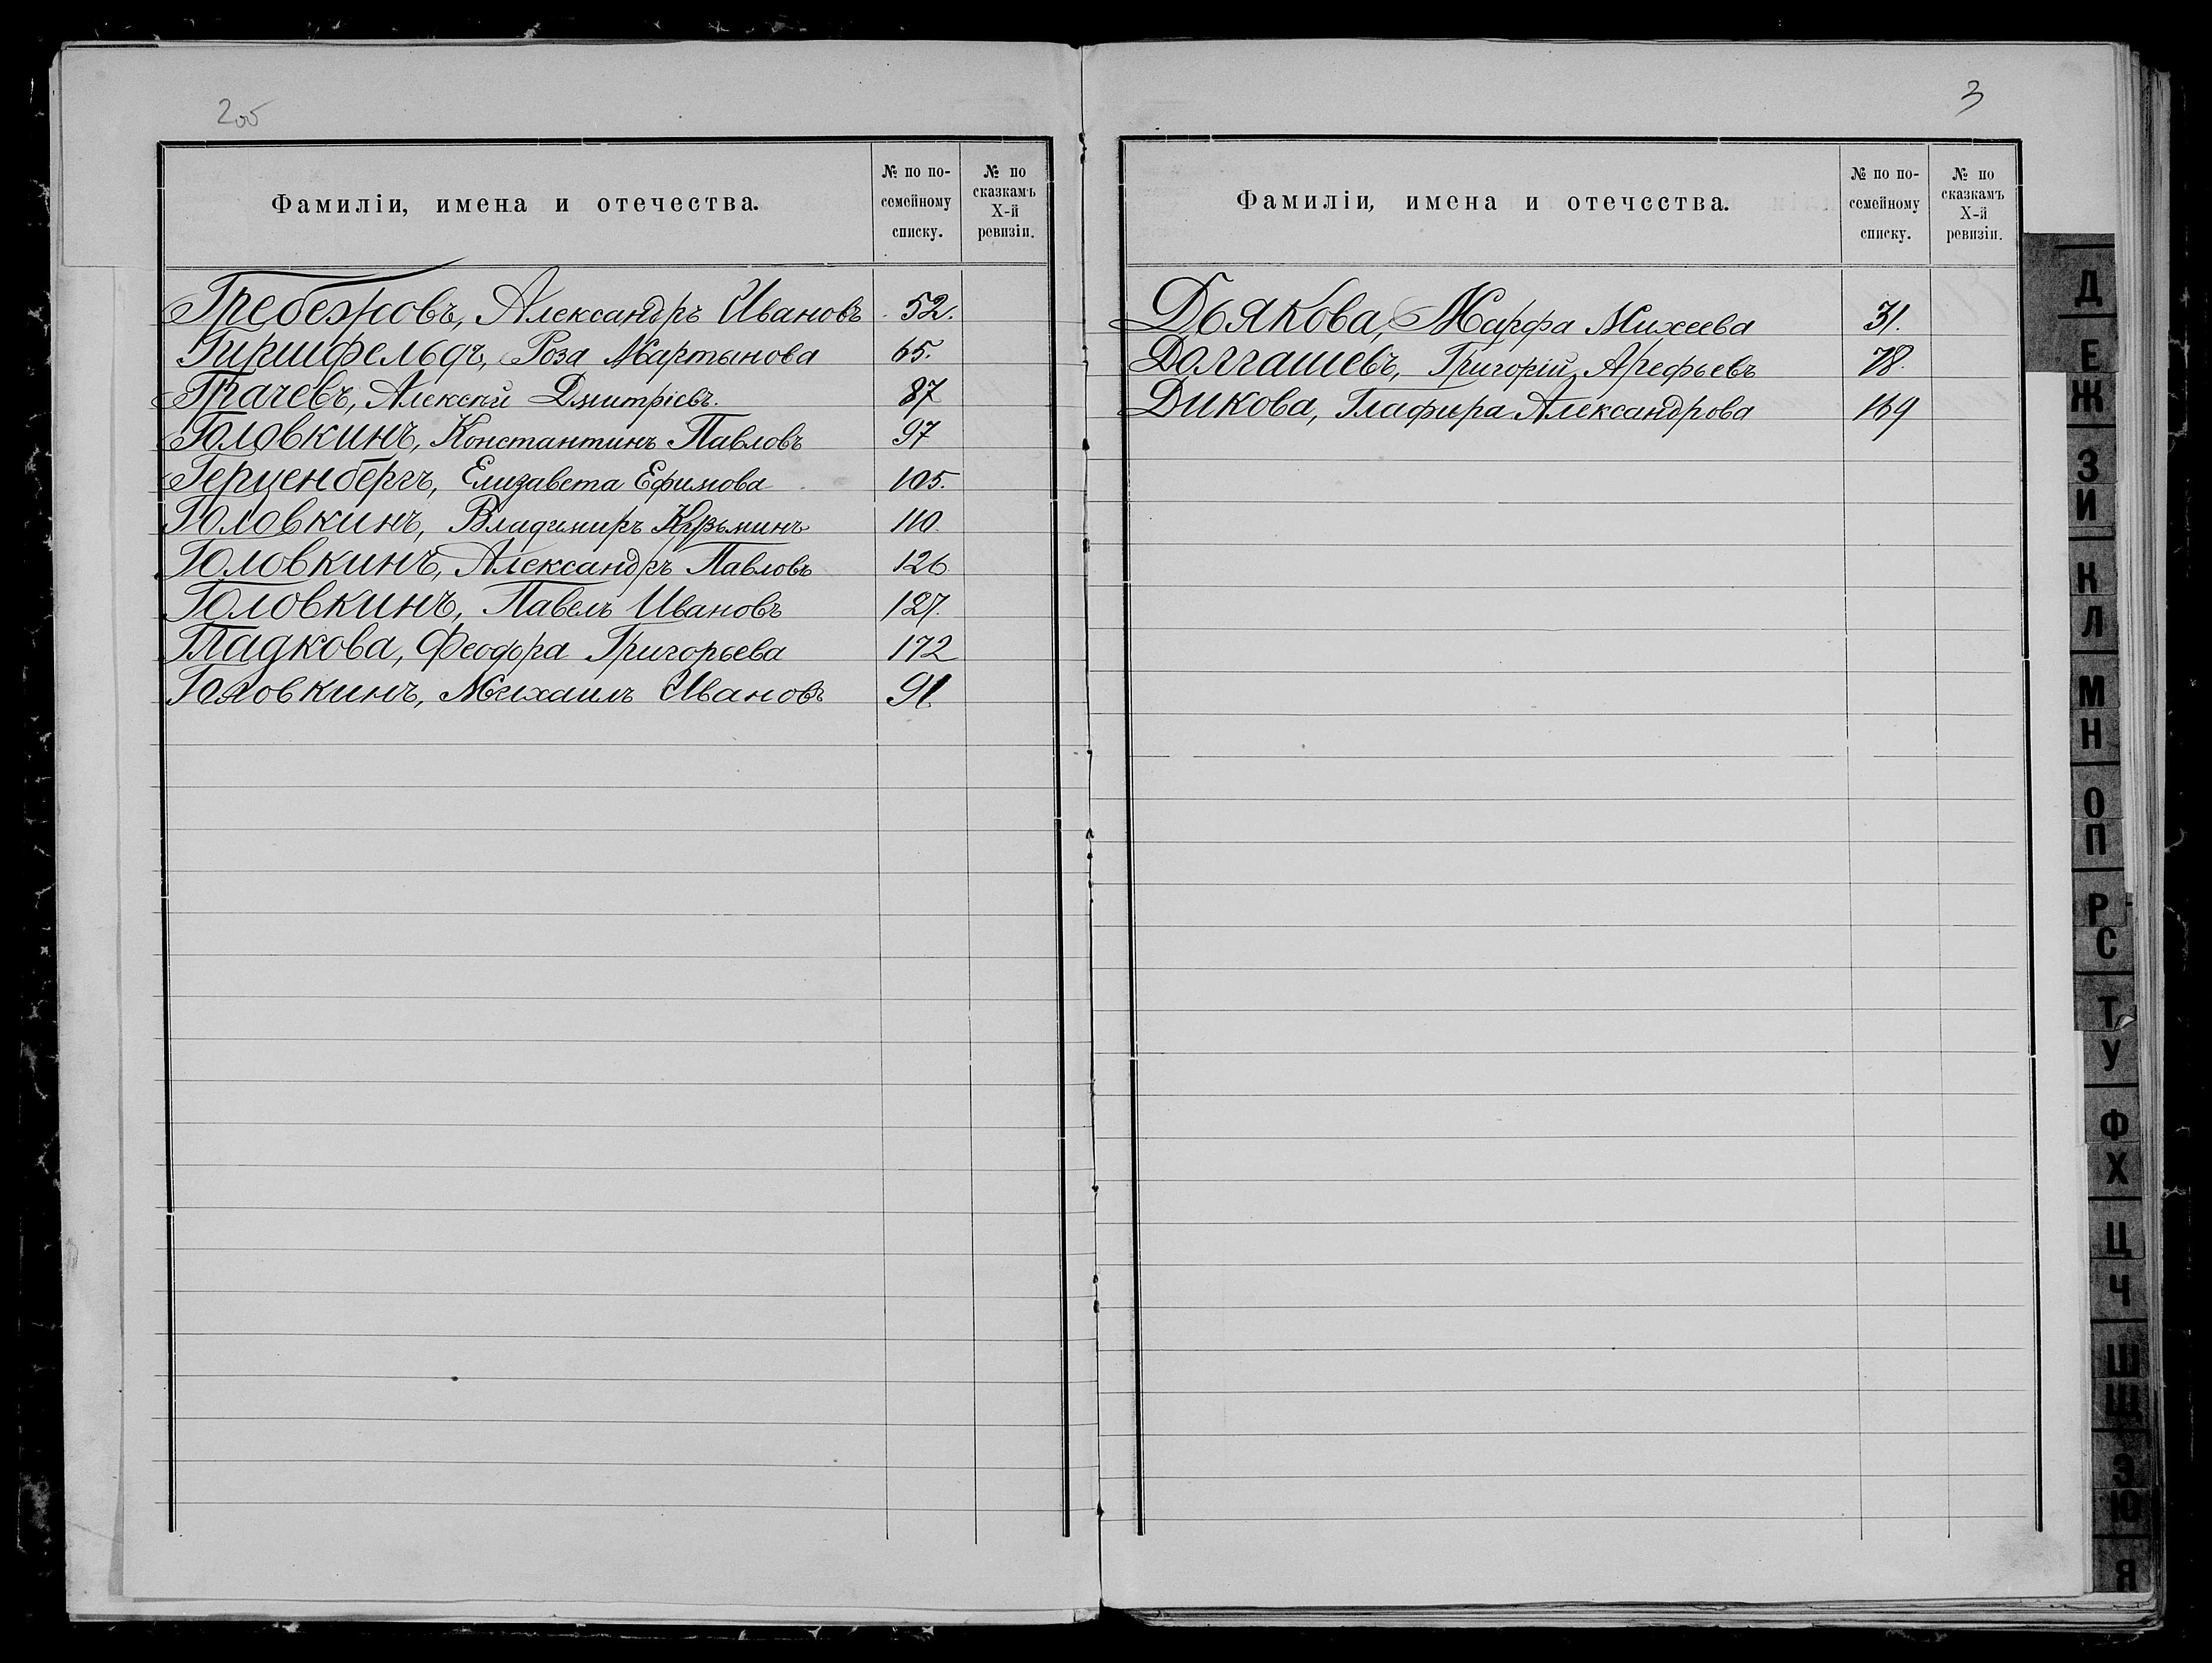 2об
Фамиліи, имена и отечества.
№ по по-
семейному
списку.
№ по
сказкамъ
X-й
ревизіи.
Гребежовъ, Александръ Ивановъ 52.
Гиршфельдъ, Роза Мартынова 65.
Грачевъ, Алексѣй Дмитріевъ. 87
Головкинъ, Константинъ Павловъ 97
Герценбергъ, Елизавета Ефимова 105.
Головкинъ, Владимиръ Кузьминъ 110.
Головкинъ, Александръ Павловъ 126
Головкинъ, Павелъ Ивановъ 127.
Гладкова, Феодора Григорьева 172
Головкинъ, Михаилъ Ивановъ 91
3
Фамиліи, имена и отечества.
№ по по-
семейному
списку.
№ по
сказкамъ
X-й
ревизіи.
Дьякова, Марфа Михеева 31.
Долгашевъ, Григорій Арефьевъ 78.
Дикова, Глафира Александрова 169
Д
Е
Ж
З
И
К
Л
М
Н
О
П
Р
С
Т
У
Ф
Х
Ц
Ч
Ш
Щ
Э
Ю
Я